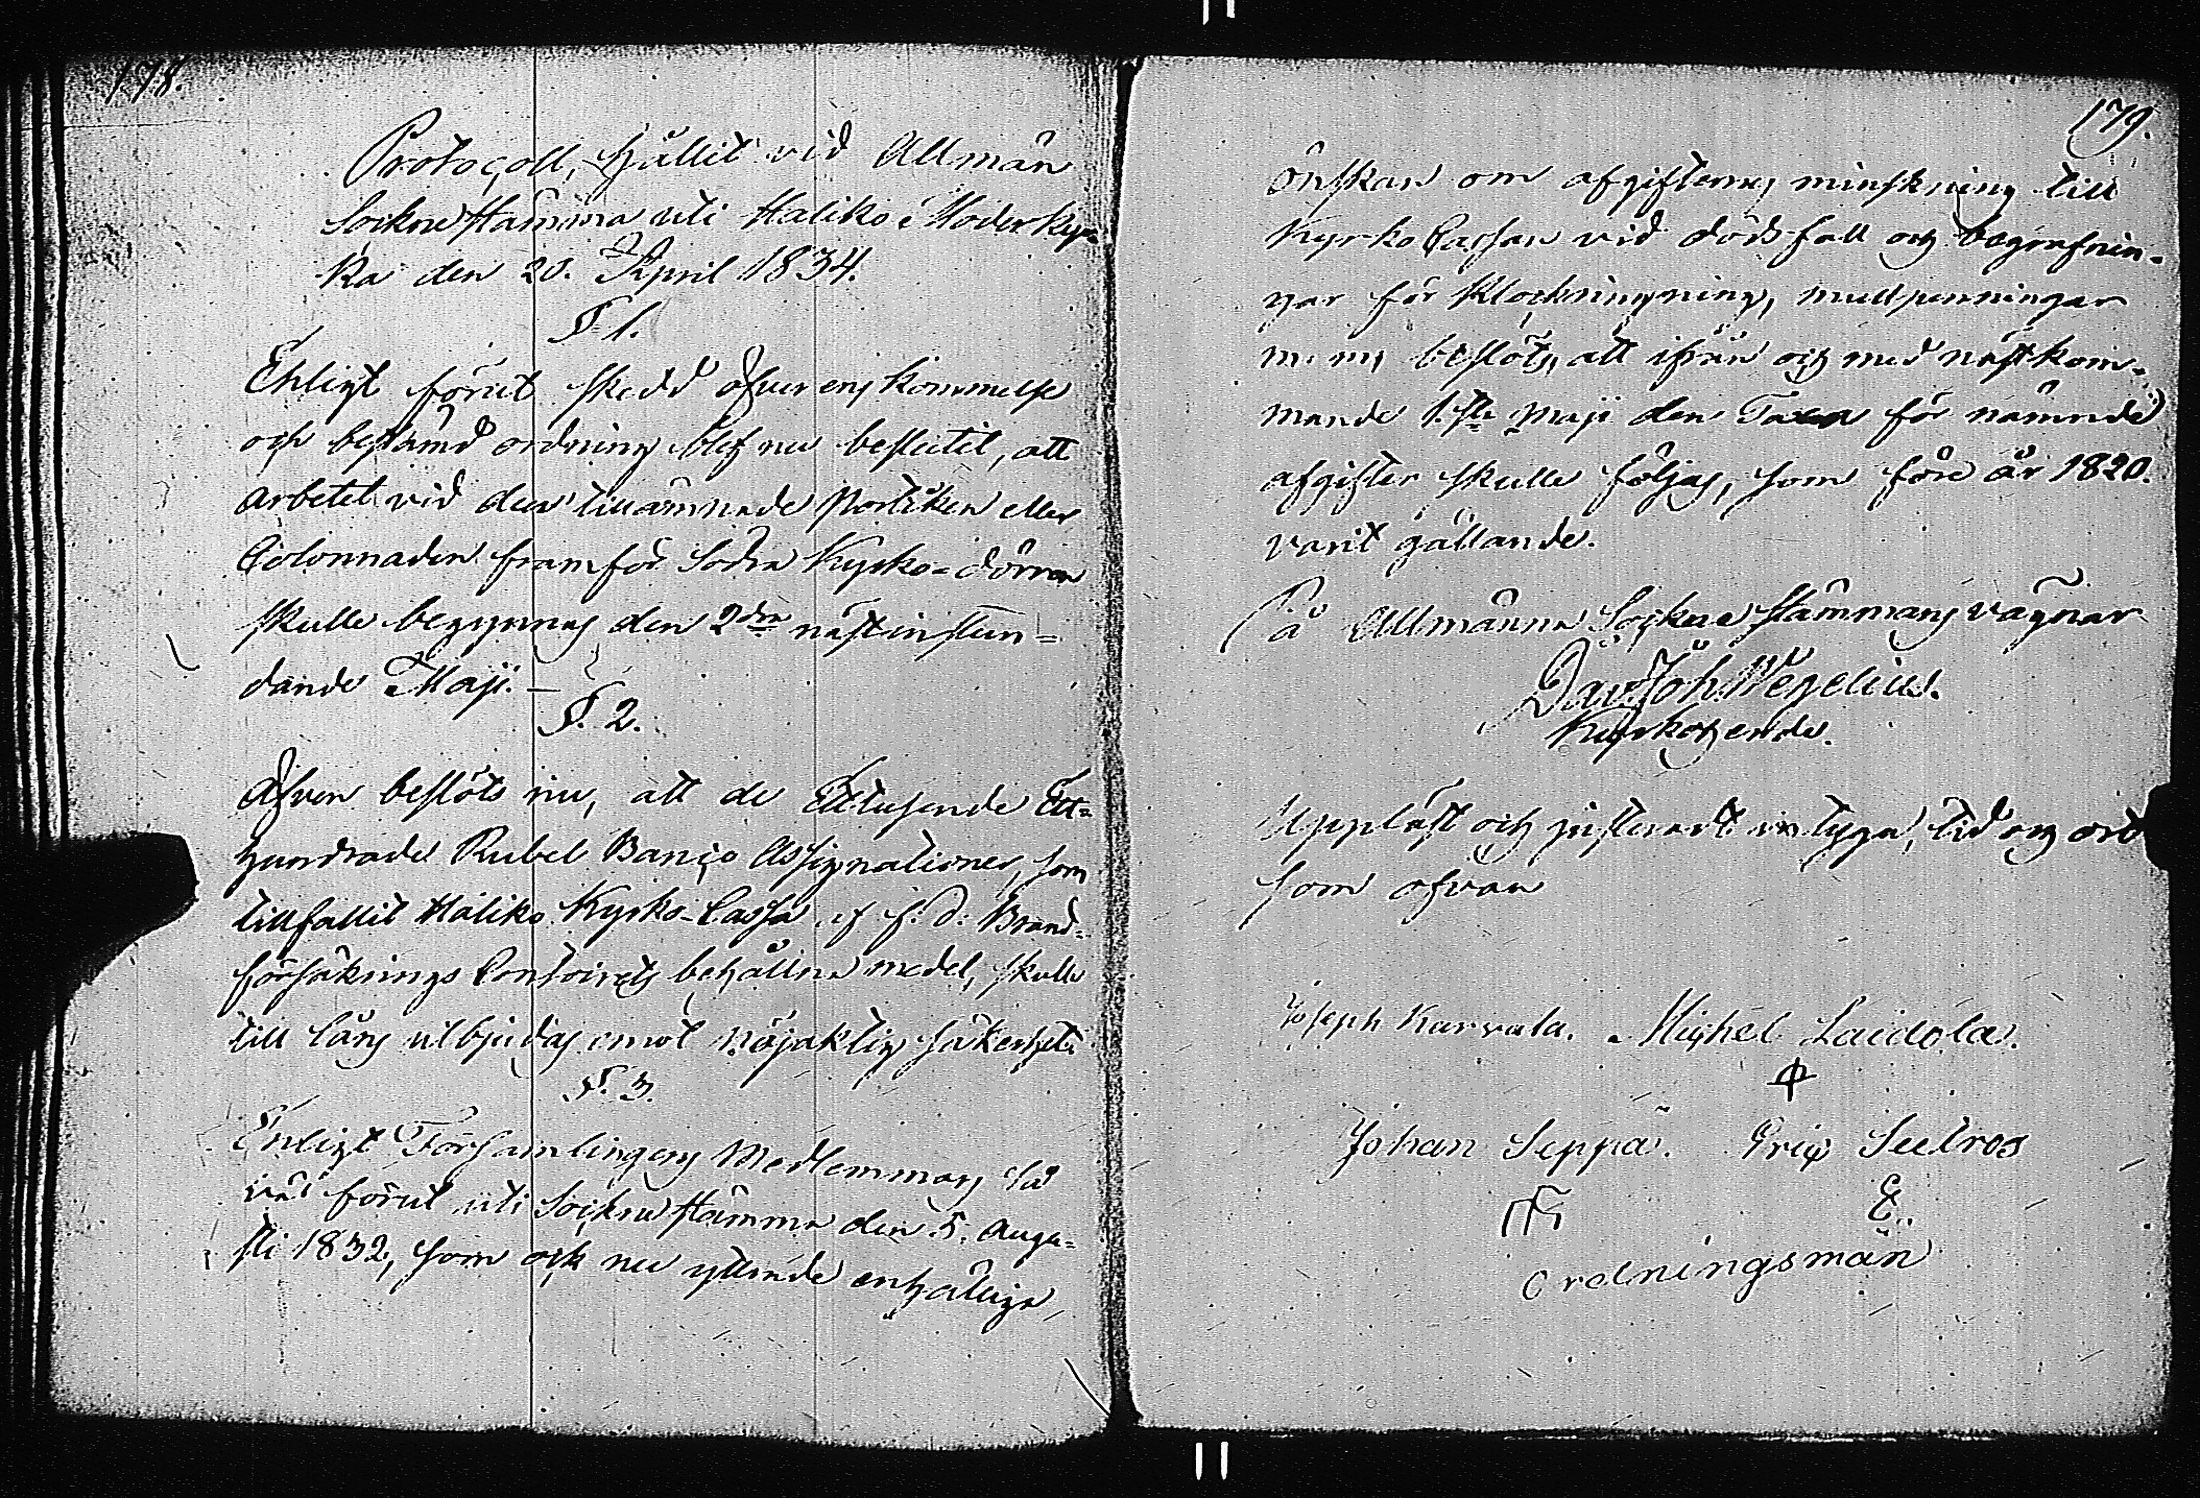 178.
Protocoll, hållit vid Allmän
Sockne Stämma uti Haliko Moderkyr=
ka den 20. April 1834.
§. 1.
Enligt förut skedd öfverenskommelse
och bestämd ordning blef nu beslutit, att
arbetet vid den tillämnade Portiken eller
Colonnaden framför Södra Kyrko=dörren
skulle begynnas den 2dra nästinstun=
dande Maji. —
§. 2.
Äfven beslöts nu, att de Ettusende Ett=
hundrade Rubel Banco Assignationer, som
tillfallit Haliko Kyrko-Cassa af f. d. Brand=
försäkrings Contoirets behållna medel, skulle
till låns utbjudas emot nöjaktig säkerhet.
§. 3.
Enligt Församlingens Medlemmars så
väl förut uti Sockne Stämma den 5. Augu=
sti 1832, som ock nu yttrade enhälliga
179.
önskan om afgifternas minskning till
Kyrko Cassan vid dödsfall och begrafnin=
gar för klockringning, mullpenningar
m. m. beslöts, att ifrån och med nästkom=
mande 1.sta Maji den Taxa för nämnde
afgifter skulle följas, som före år 1820.
varit gällande.
På Allmänna Sockne Stämmans vägnar
Dav. Joh. Wegelius.
Kyrkoherde.
Uppläst och justeradt intyga, tid och ort
som ofvan
Joseph Karvala. Michel Laidola.
Johan Seppä. Eric Seetros
E.
ordningsmän